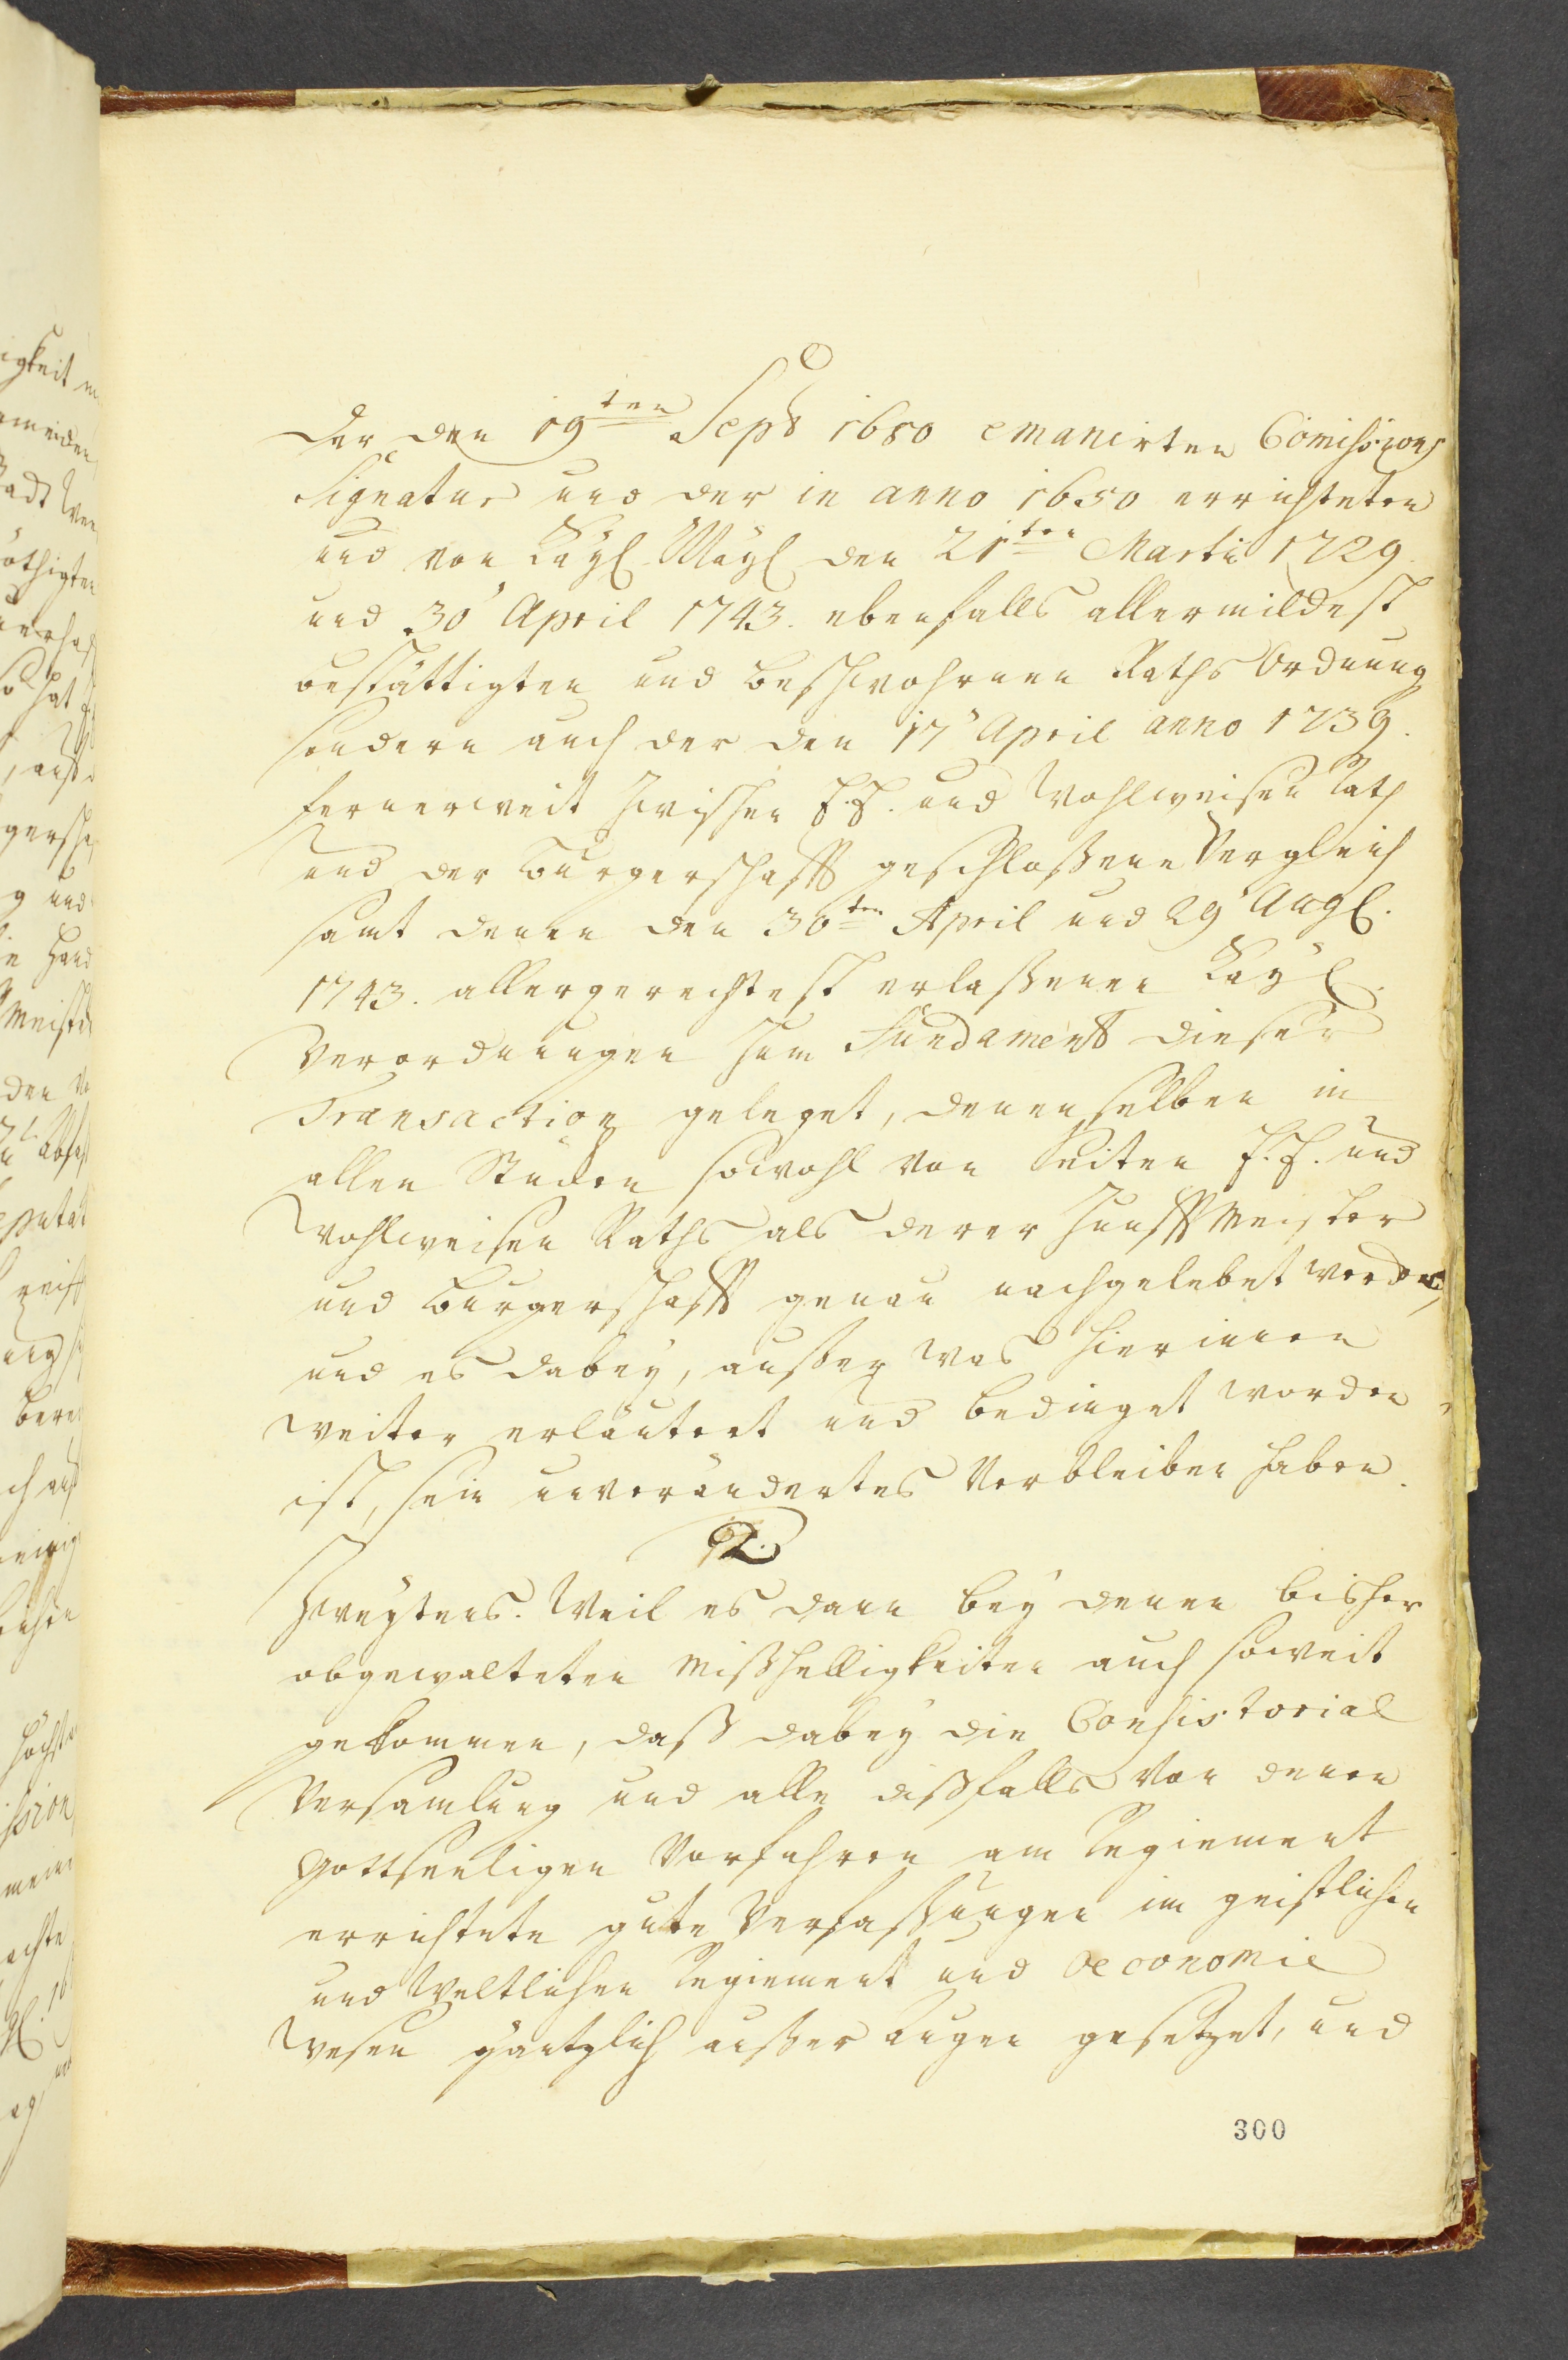 der den 19ten Sept 1650 emanirten Comissions
Signatur und der in anno 1650 errichteten
und von Kayl. Mayl. den 21ten Marti 1729.
und 30' April 1743. ebenfalls allermildest
bestättigten und beschwohrnen Raths Ordnung
sondern auch der den 17' April anno 1739.
fernerweit zwischen E. E. und Wohlweisen Rath
und der Burgerschafft geschloßene Vergleich
samt denen den 30ten April und 29' Augl.
1743. allergerechtest erlaßenen Kayl.
Verordnungen zum Fundament dieser
Transaction geleget, denenselben in
allen Stücken sowohl von Seiten E. E. und
Wohlweisen Raths als derer Zunfft Meister
und Burgerschafft genau nachgelebet werden,
und es dabey, außer was hierinnen
weiter erläutert und bedinget worden
ist, sein unverändertes Verbleiben haben.
2.
Zweytens. Weil es dann bey denen bisher
obgewalteten Mißhelligkeiten auch soweit
gekommen, daß dabey die Consistorial
Versamlung und alle dißfalls von denen
Gottseeligen Vorfahren am Regiement
errichtete gute Verfaßungen im geistlichen
und Weltlichen Regiement und Oeconomie
Wesen gäntzlich außer Augen gesetzet, und
300